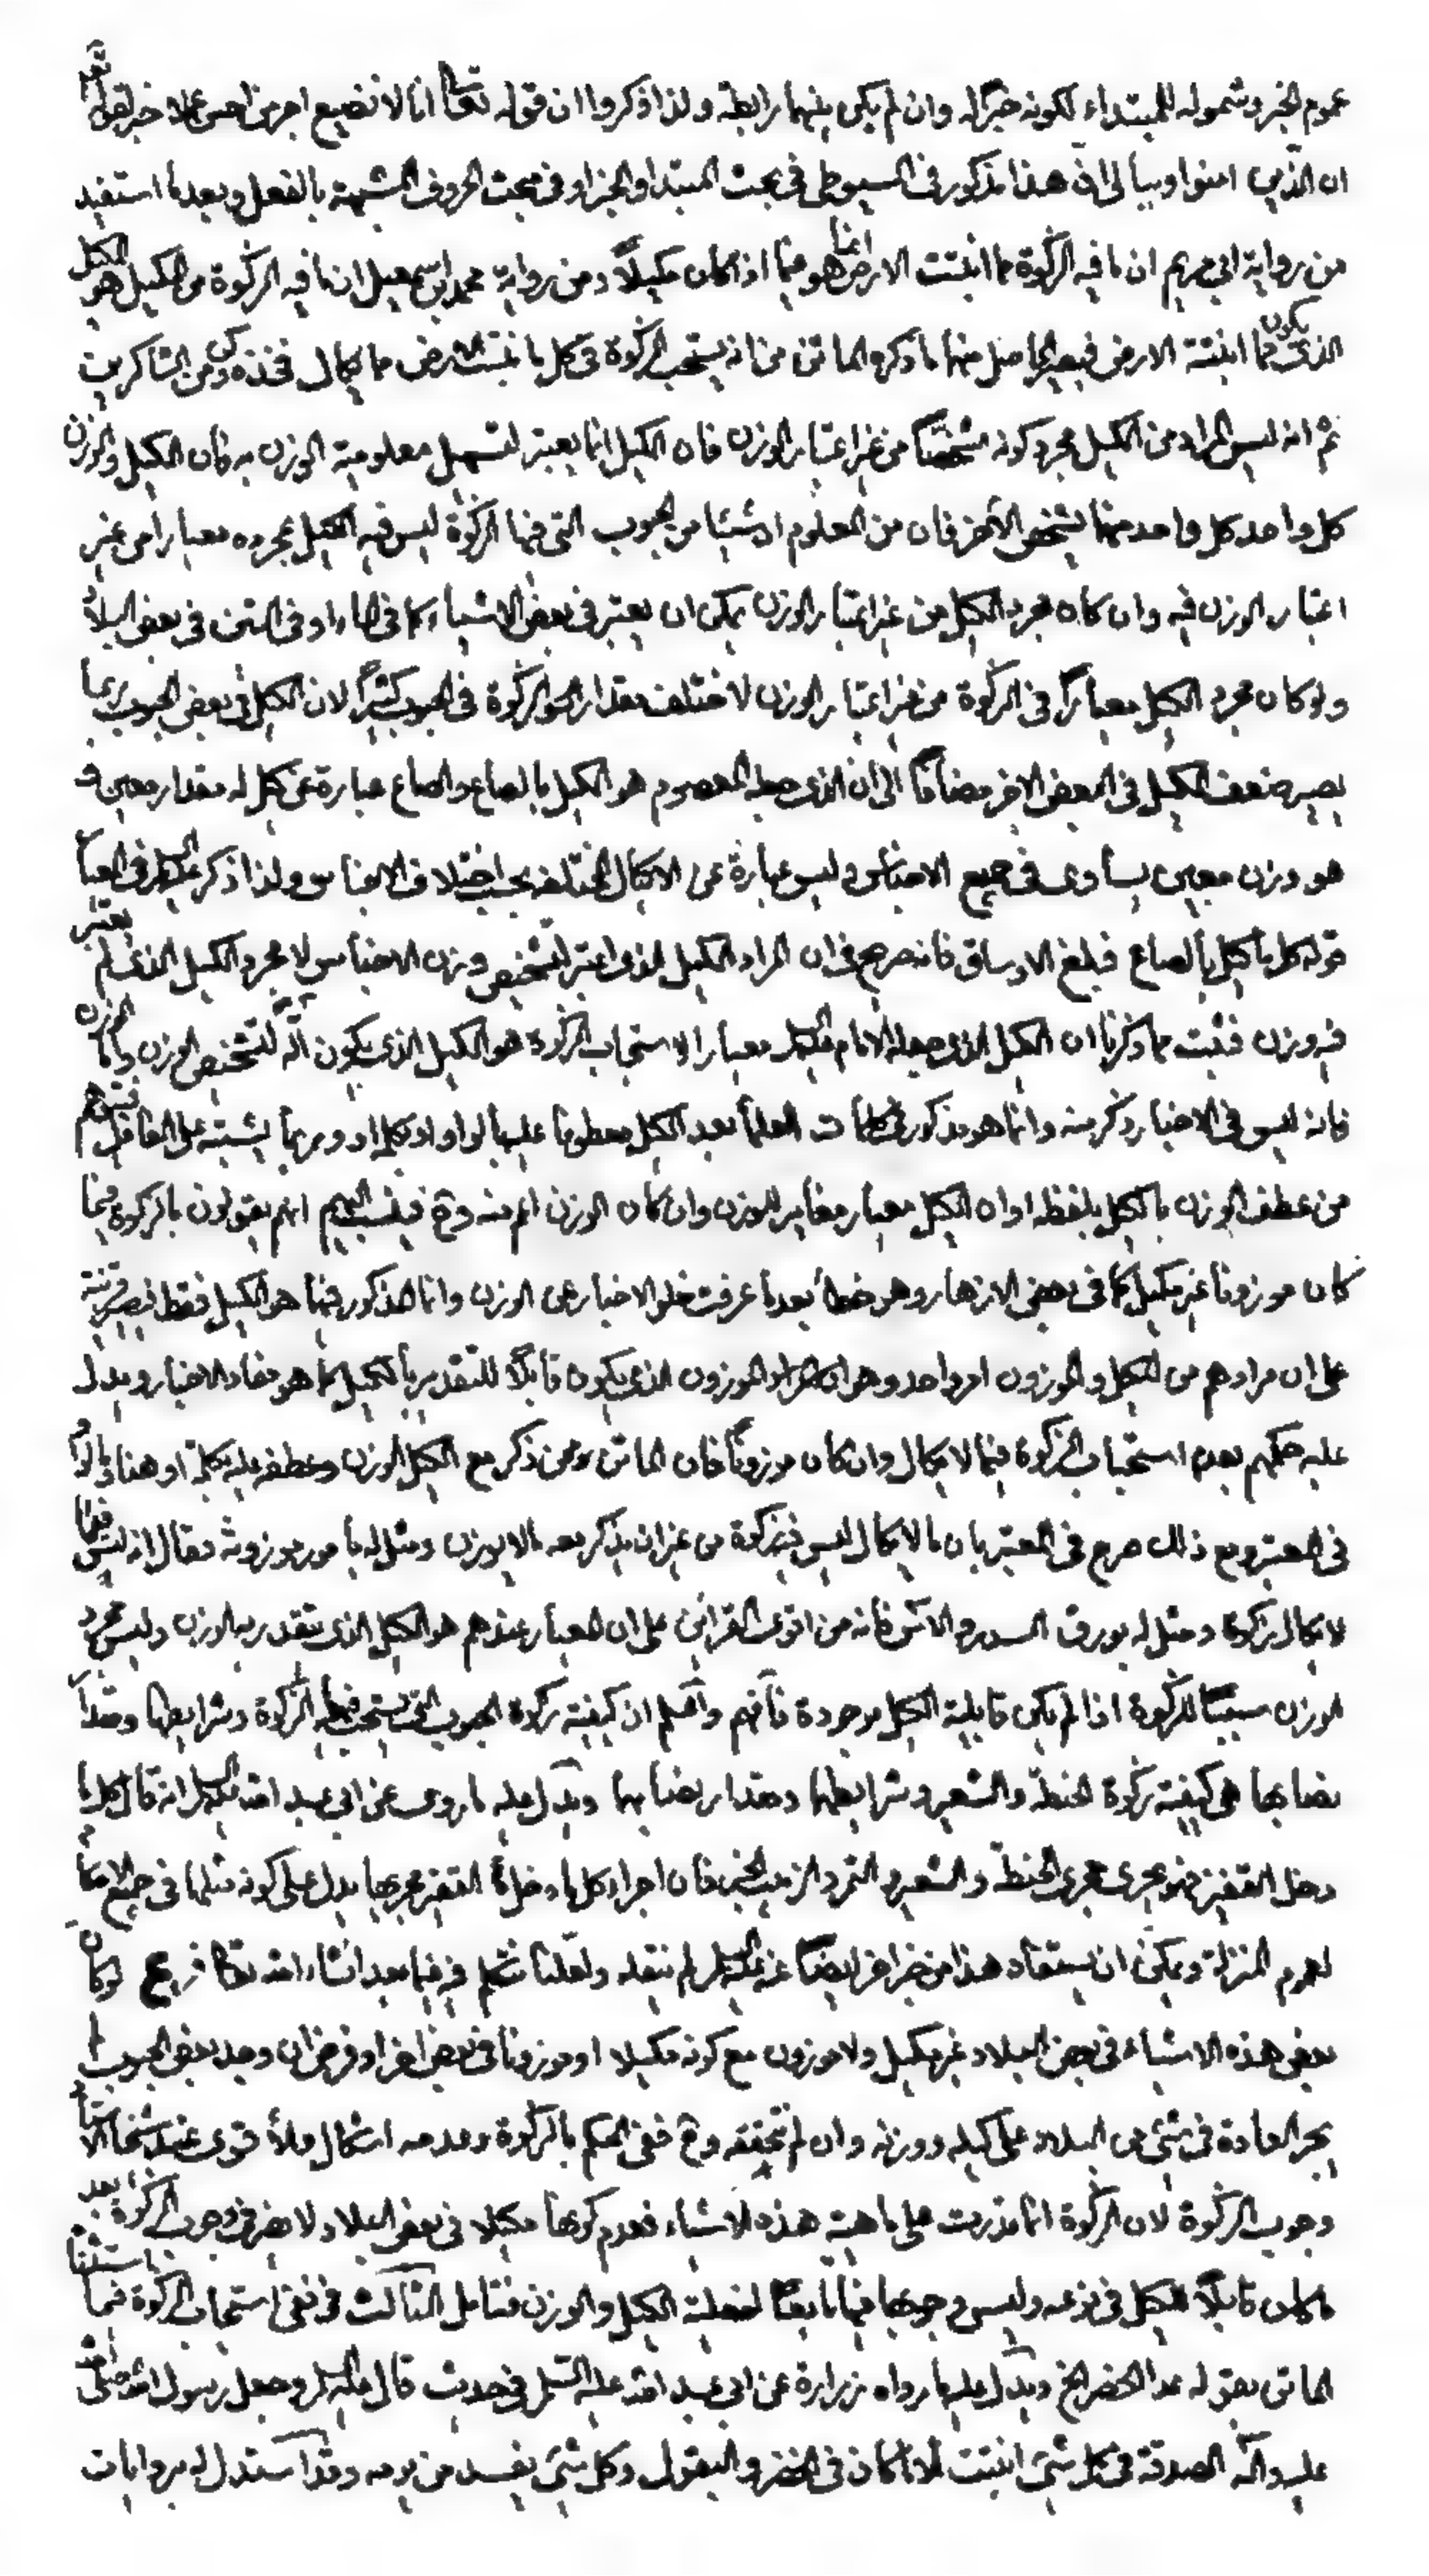 عموم الخبر وشموله للمبتداء لكونه خبرًا له وان لم يكن بينهما رابطة ولذا ذكروا ان قوله تعالى انا لا نضيع اجر من احسن عملا خبر لقوله تعالى
ان الذين امنوا وبينا لى ان هذا مذكور فى السيوطى فى بحث المبتدا والخبر او فى مبحث الحروف المشبهة بالفعل وبعد ما استفيد
من رواية ابى مريم ان ما فيه الزكوة مما انبتت الارض انما هو فيما اذا كان مكيلًا ومن رواية محمد ابن اسمعيل ان ما فيه الزكوة من المكيل هو المكيل
الذى يكون مما انبتته الارض فيصير الحاصل منهما ما ذكره الماتن من انه يستحب الزكوة فى كل ما انبتت الارض مما يكال فخذه وكن من الشاكرين
ثم انه ليس المراد من الكيل مجرد كونه مشخصًا من غير اعتبار الوزن فان الكيل انما يعتبر لتسهيل معلومية الوزن به فان الكيل والوزن
كل واحد كل واحد منهما يشخص الأخر فان من المعلوم ان شيئا من الحبوب التى فيها الزكوة ليس فيه الكيل بمجرده معيارا من غير
اعتبار الوزن فيه وان كان مجرد الكيل من غير اعتبار الوزن يمكن ان يعتبر فى بعض الاشياء كما فى الماء او فى التبن فى بعض البلاد
ولو كان مجرد الكيل معيارًا فى الزكوة من غير اعتبار الوزن لاختلف مقدار الزكوة فى الحبوب كثيرًا لان الكيل فى بعض الحبوب ربما
يصير ضعف الكيل فى البعض الاخر مضافًا الى ان الذى جعله المعصوم هو الكيل بالصاع والصاع عبارة عن كل له مقدار معين و
هو وزن معين يساوى فى جميع الاجناس وليس عبارة عن الاكيال المختلفة بحسب اختلاف الاجناس ولذا ذكر فى العبا
قوله كل ما كيل بالصاع فبلغ الاوساق فانه صريح فى ان المراد الكيل الذى اعتبر لتشخيص وزن الاجناس لا مجرد الكيل الذى لم يعتبر
فيه وزن فثبت مما ذكرنا ان الكيل الذى جعله الامام معيارا لاستحباب الزكوة هو الكيل الذى يكون آلة لتشخيص الوزن واما الوزن
فانه ليس فى الاخبار ذكر منه وانما هو مذكور فى كلمات العلما بعد الكيل معطوفا عليه بالواو او بكلمة او وربما يشتبه على الغافل فيتوهم
من عطف الوزن بالكيل بلفظه او ان الكيل معيار مغاير للوزن وان كان الوزن اعم منه وح فينسب اليهم انهم يقولون بالزكوة فيما
كان موزونا غير مكيل كما فى بعض الازهار وهو خطأ بعد ما عرفت خلو الاخبار عن الوزن وانما المذكور فيها هو الكيل فقط فيصير قرينة
على ان مرادهم من الكيل والموزون امر واحد وهو ان المراد الموزون الذى يكون قابلًا للتقدير بالكيل كما هو مفاد الاخبار ويدل
عليه حكمهم بعدم استحباب الزكوة فيما لا يكال وان كان موزونًا فان الماتن ممن ذكر مع الكيل الوزن وعطفه عليه بكلمة او هنا وبالواو
فى المعتبر ومع ذلك صرح فى المعتبر بان ما لا يكال ليس فيه زكوة من غير ان يذكر معه ما لا يوزن ومثل له بامور موزونة فقال انه ليس فيما
لا يكال زكوة ومثل له بورق السدر والاس فانه من اقوى القرائن على ان المعيار عندهم هو الكيل الذى يتقدر به الوزن وليس مجرد
الوزن سببًا للزكوة اذا لم يكن قابلية الكيل موجودة فافهم واعلم ان كيفية زكوة الحبوب التى يستحب فيها الزكوة وشرايطها ومقدار
نصابها هى كيفية زكوة الحنطة والشعير وشرايطها ومقدار نصابهما ويدل عليه ما روى عن ابى عبد الله عليه السلام انه قال كل ما
دخل القفيز فهو يجرى مجرى الحنطة والشعير والتمر والزبيب الخبر فان اجراء كل ما دخل القفيز مجريها يدل على كونه مثلها فى جميع الاحكام
لعموم المنزلة ويمكن ان يستفاد هذا من خبر اخر ايضًا عنه لم ننقله ولعلنا نتكلم فيه فيما بعد انشاء الله تعالى فرع لو كان
بعض هذه الاشياء فى بعض البلاد غير مكيل ولا موزون مع كونه مكيلا او موزونا فى بعض اخر او فرض ان وجد بعض الحبوب لم
يجر العادة فى شئ من البلاد على كيله ووزنه وان لم نتحققه وح ففى الحكم بالزكوة وعدمه اشكال والاقوى عند شيخنا الاستاد
وجوب الزكوة لان الزكوة انما قدرت على ماهية هذه الاشياء فعدم كونها مكيلا فى بعض البلاد لا يضر فى وجوب الزكوة بعد
ما كان قابلًا للكيل فى نوعه وليس وجوبها فيها تابعًا لفعلية الكيل والوزن فتامل الثالث فى نفى استحباب الزكوة فيما استثنا
الماتن بقوله عدا الخضر الخ ويدل عليه ما رواه زرارة عن ابى عبد الله عليه السلم فى حديث قال وجعل رسول الله صلى الله
عليه وآله الصدقة فى كل شئ انبتت الا ما كان فى الخضر والبقول وكل شئ يفسد من يومه وقد استدل له بروايات